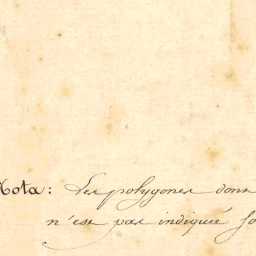 Nota: Les polygones dont
n'est pas indiquée